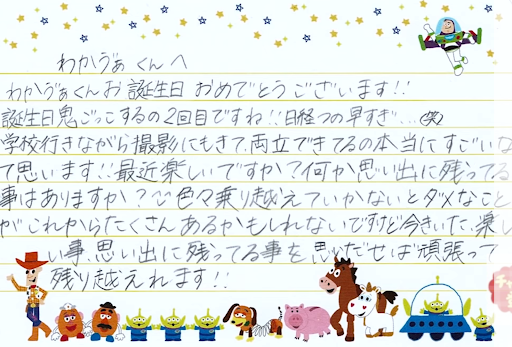 わかゔぁくんへ
わかゔぁくんお誕生日おめでとうございます!!
誕生日鬼ごっこするの2回目ですね!!日経つの早すぎ...(笑)
学校行きながら撮影にもきて、両立できてるの本当にすごいな
て思います!!最近楽しいですか?何か思い出に残ってる
事はありますか?色々乗り越えていかないとダメなこと
がこれからたくさんあるかもしれないですけど今きいた、楽し
い事、思い出に残ってる事を思いだせば頑張って
残り越えれます!!